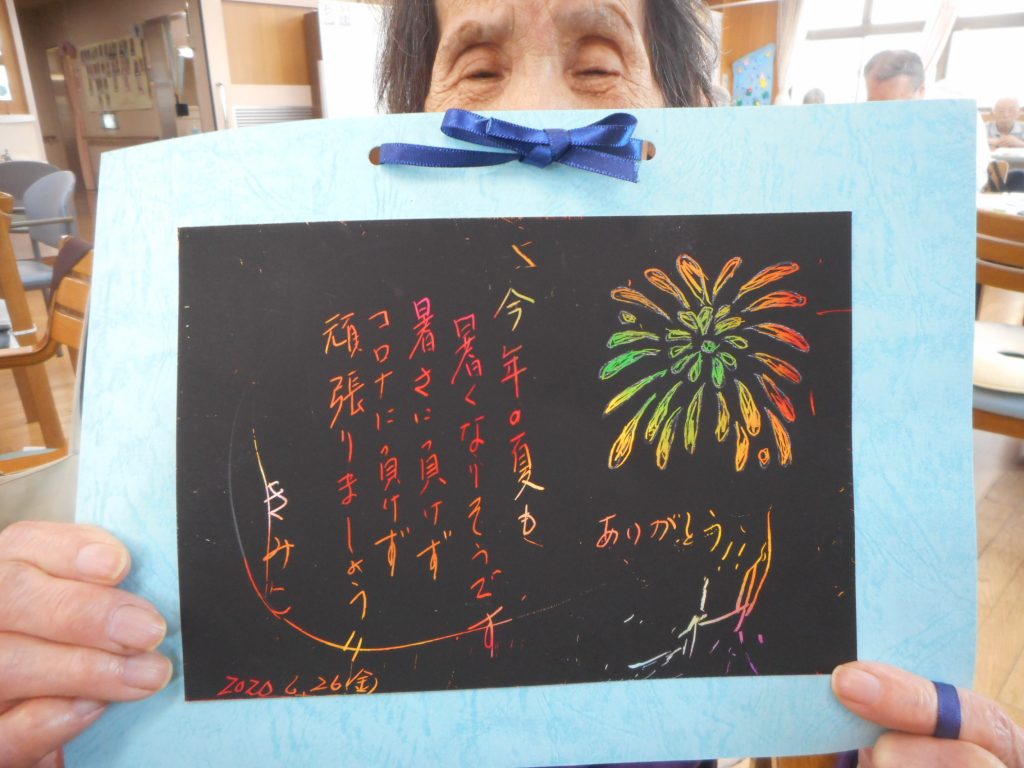 今年の夏も
暑くなりそうです
暑さに負けず
コロナに負けず
頑張りましょう
きみこ
ありがとう
2020 6.26(金)